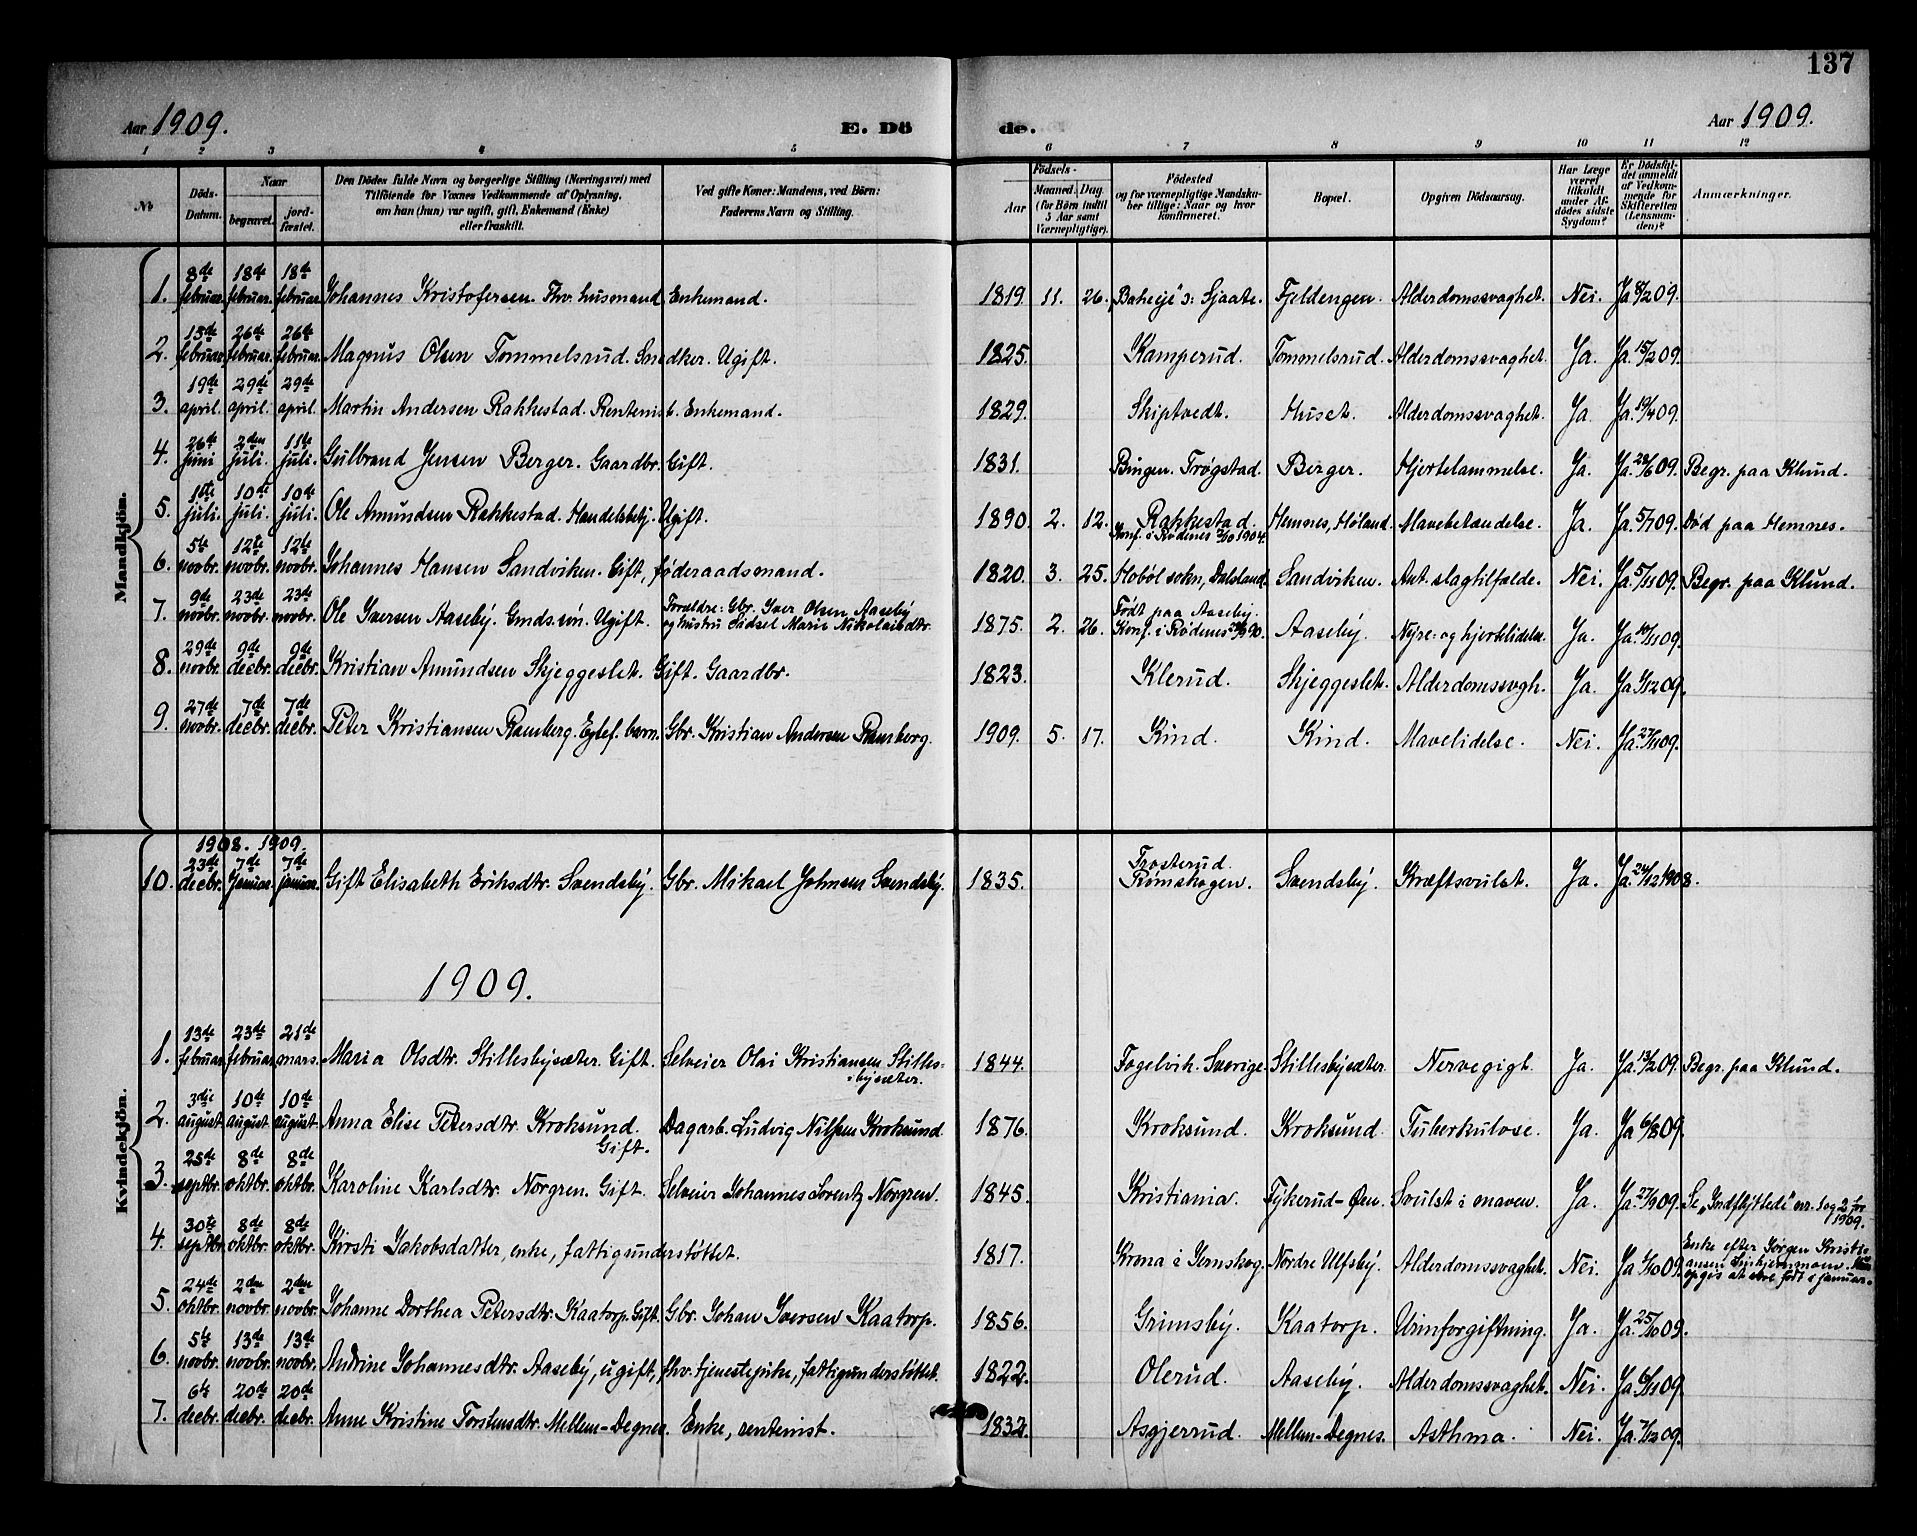 137
Aar 1909. E. Dö de. Aar 1909.
1 2 3 4 5 6 7 8 9 10 11 12
No Döds-Datum. Naar begravet. jordfæstet. Den Dödes fulde Navn og borgerlige Stilling (Næringsvei) med Tilföiende for Voxnes Vedkommende af Oplysning, om han (hun) var ugift, gift, Enkemand (Enke) eller fraskilt. Ved gifte Koner: Mandens, ved Börn: Faderens Navn og Stilling. Födsels- Aar Maaned. Dag. (for Börn indtil 5 Aar samt Værnepligtige). Födested og for værnepligtige Mandskaber tillige: Naar og hvor konfirmeret. Bopæl. Opgiven Dödsaarsag. Har Læge været tilkaldt under Afdödes sidste Sygdom? Er Dödsfaldet anmeldt af Vedkommende for Skifteretten (Lensmanden)? Anmærkninger.
Mandkjön.
1. 8de februar. 18de februar. 18de februar. Johannes Kristofersen. Fhv. husmand Enkemand. 1819. 11. 26. Fjeldengen. Alderdomssvaghet. Nei. Ja 8/2 09.
2. 15de februar. 26de februar. 26de februar. Magnus Olsen Tommelsrud. Snedker. Ugift. 1825. Kamperud. Tommelsrud. Alderdomssvaghet. Ja. Ja. 15/2 09.
3. 19de april. 29de april. 29de april. Martin Andersen Rakkestad. Rentenist. Enkemand. 1829. Skiptvedt. Huset. Alderdomssvaghet. Ja. Ja. 19/4 09.
4. 26de juni 2den juli. 11te juli. Gulbrand Jensen Berger. Gaardbr. Gift. 1831. Bingen. Trøgstad. Berger. Hjertelammelse. Ja. Ja. 28/6 09. Begr. paa Klund.
5. 1ste juli. 10de juli. 10de juli. Ole Amundsen Rakkestad. Handelsbetj. Ugift. 1890. 2. 12. Rakkestad. Konf. i Rødenes 2/10 1904. Hemnes, Høland. Mavebetændelse. Ja. Ja. 5/7 09. Død paa Hemnes.
6. 5te novbr. 12te novbr. 12te novbr. Johannes Hansen Sandviken. Gift, føderaadsmand. 1820. 3. 25. Hobøl sokn, Dalsland. Sandviken. Ant. slagtilfælde. Nei. Ja. 5/11 09. Begr. paa Klund.
7. 9de novbr. 23de novbr. 23de novbr. Ole Iversen Aaseby. Gmds. søn. Ugift. Forældre: Gbr. Iver Olsen Aaseby og hustru Sidsel Marie Nikolaisdtr. 1875. 2. 26. Født paa Aaseby. Konf. i Rødenes 90. Aaseby. Nyre- og hjertelidelse. Ja. Ja. 10/11 09.
8. 29de novbr. 9de decbr. 9de decbr. Kristian Amundsen Skjeggeslet. Gift. Gaardbr. 1823. Klerud. Skjeggeslet. Alderdomssvagh. Ja. Ja 1/12 09.
9. 27de novbr. 7de decbr. 7de decbr. Peter Kristiansen Ramberg. Egtef. barn. Gbr. Kristian Andersen Ramberg. 1909. 5. 17. Kind. Kind. Mavelidelse. Nei. Ja. 27/11 09.
1908. 1909.
10. 23de decbr. 7de januar. 7de januar. Gift Elisabeth Eriksdtr. Svendsby. Gbr. Mikael Johnsen Svendsby. 1835. Trosterud. Rømskogen. Svendsby. Kræftsvulst. Ja. Ja. 24/12 1908.
1909.
Kvindekjön.
1. 13de februar. 23de februar. 21de mars. Maria Olsdtr. Stillesbysæter. Gift. Selveier Olai Kristiansen Stilles-bysæter. 1844. Fogelvik. Sverige. Stillesbysæter. Nervegigt. Ja. Ja. 13/2 09. Begr. paa Klund.
2. 3die august. 10de august. 10de august. Anna Elise Petersdtr. Kroksund. Gift. Dagarb. Ludvig Nilssen Kroksund. 1876. Kroksund. Kroksund. Tuberkulose. Ja. Ja 6/8 09.
3. 25de septbr. 8de oktbr. 8de oktbr. Karoline Karlsdtr. Norgren. Gift. Selveier Johannes Lorentz Norgren. 1845. Kristiania. Fykerud-Øen. Svulst i maven. Ja. Ja. 27/9 09. Se „Indflyttede" nr. 1 og 2 for 1909.
4. 30te septbr. 8de oktbr. 8de oktbr. Kirsti Jakobsdatter, enke, fattigunderstøttet. 1817. Krona i Jernskog. Nordre Ulfsby. Alderdomssvaghet. Nei. Ja 1/10 09. Enke efter Jørgen Kristiansen opgis at være født i januar.
5. 24de oktbr. 2den novbr. 2den novbr. Johanne Dorthea Petersdtr. Kaatorp. Gift. Gbr. Johan Iversen Kaatorp. 1856. Grimsby. Kaatorp. Urinforgiftning. Ja. Ja. 25/10 09.
6. 5te novbr. 13de novbr. 13de novbr. Andrine Johannesdtr. Aaseby, ugift, fhv. tjenestepike, fattigunderstøttet. 1822. Olerud. Aaseby. Alderdomssvaghet. Nei. Ja. 6/11 09.
7. 6te decbr. 20de decbr. 20de decbr. Anne Kristine Torstensdtr. Mellem-Degnes. Enke, rentenist. 1832. Asgjerrud. Mellem-Degnes. Asthma. Nei. Ja. 7/12 09.